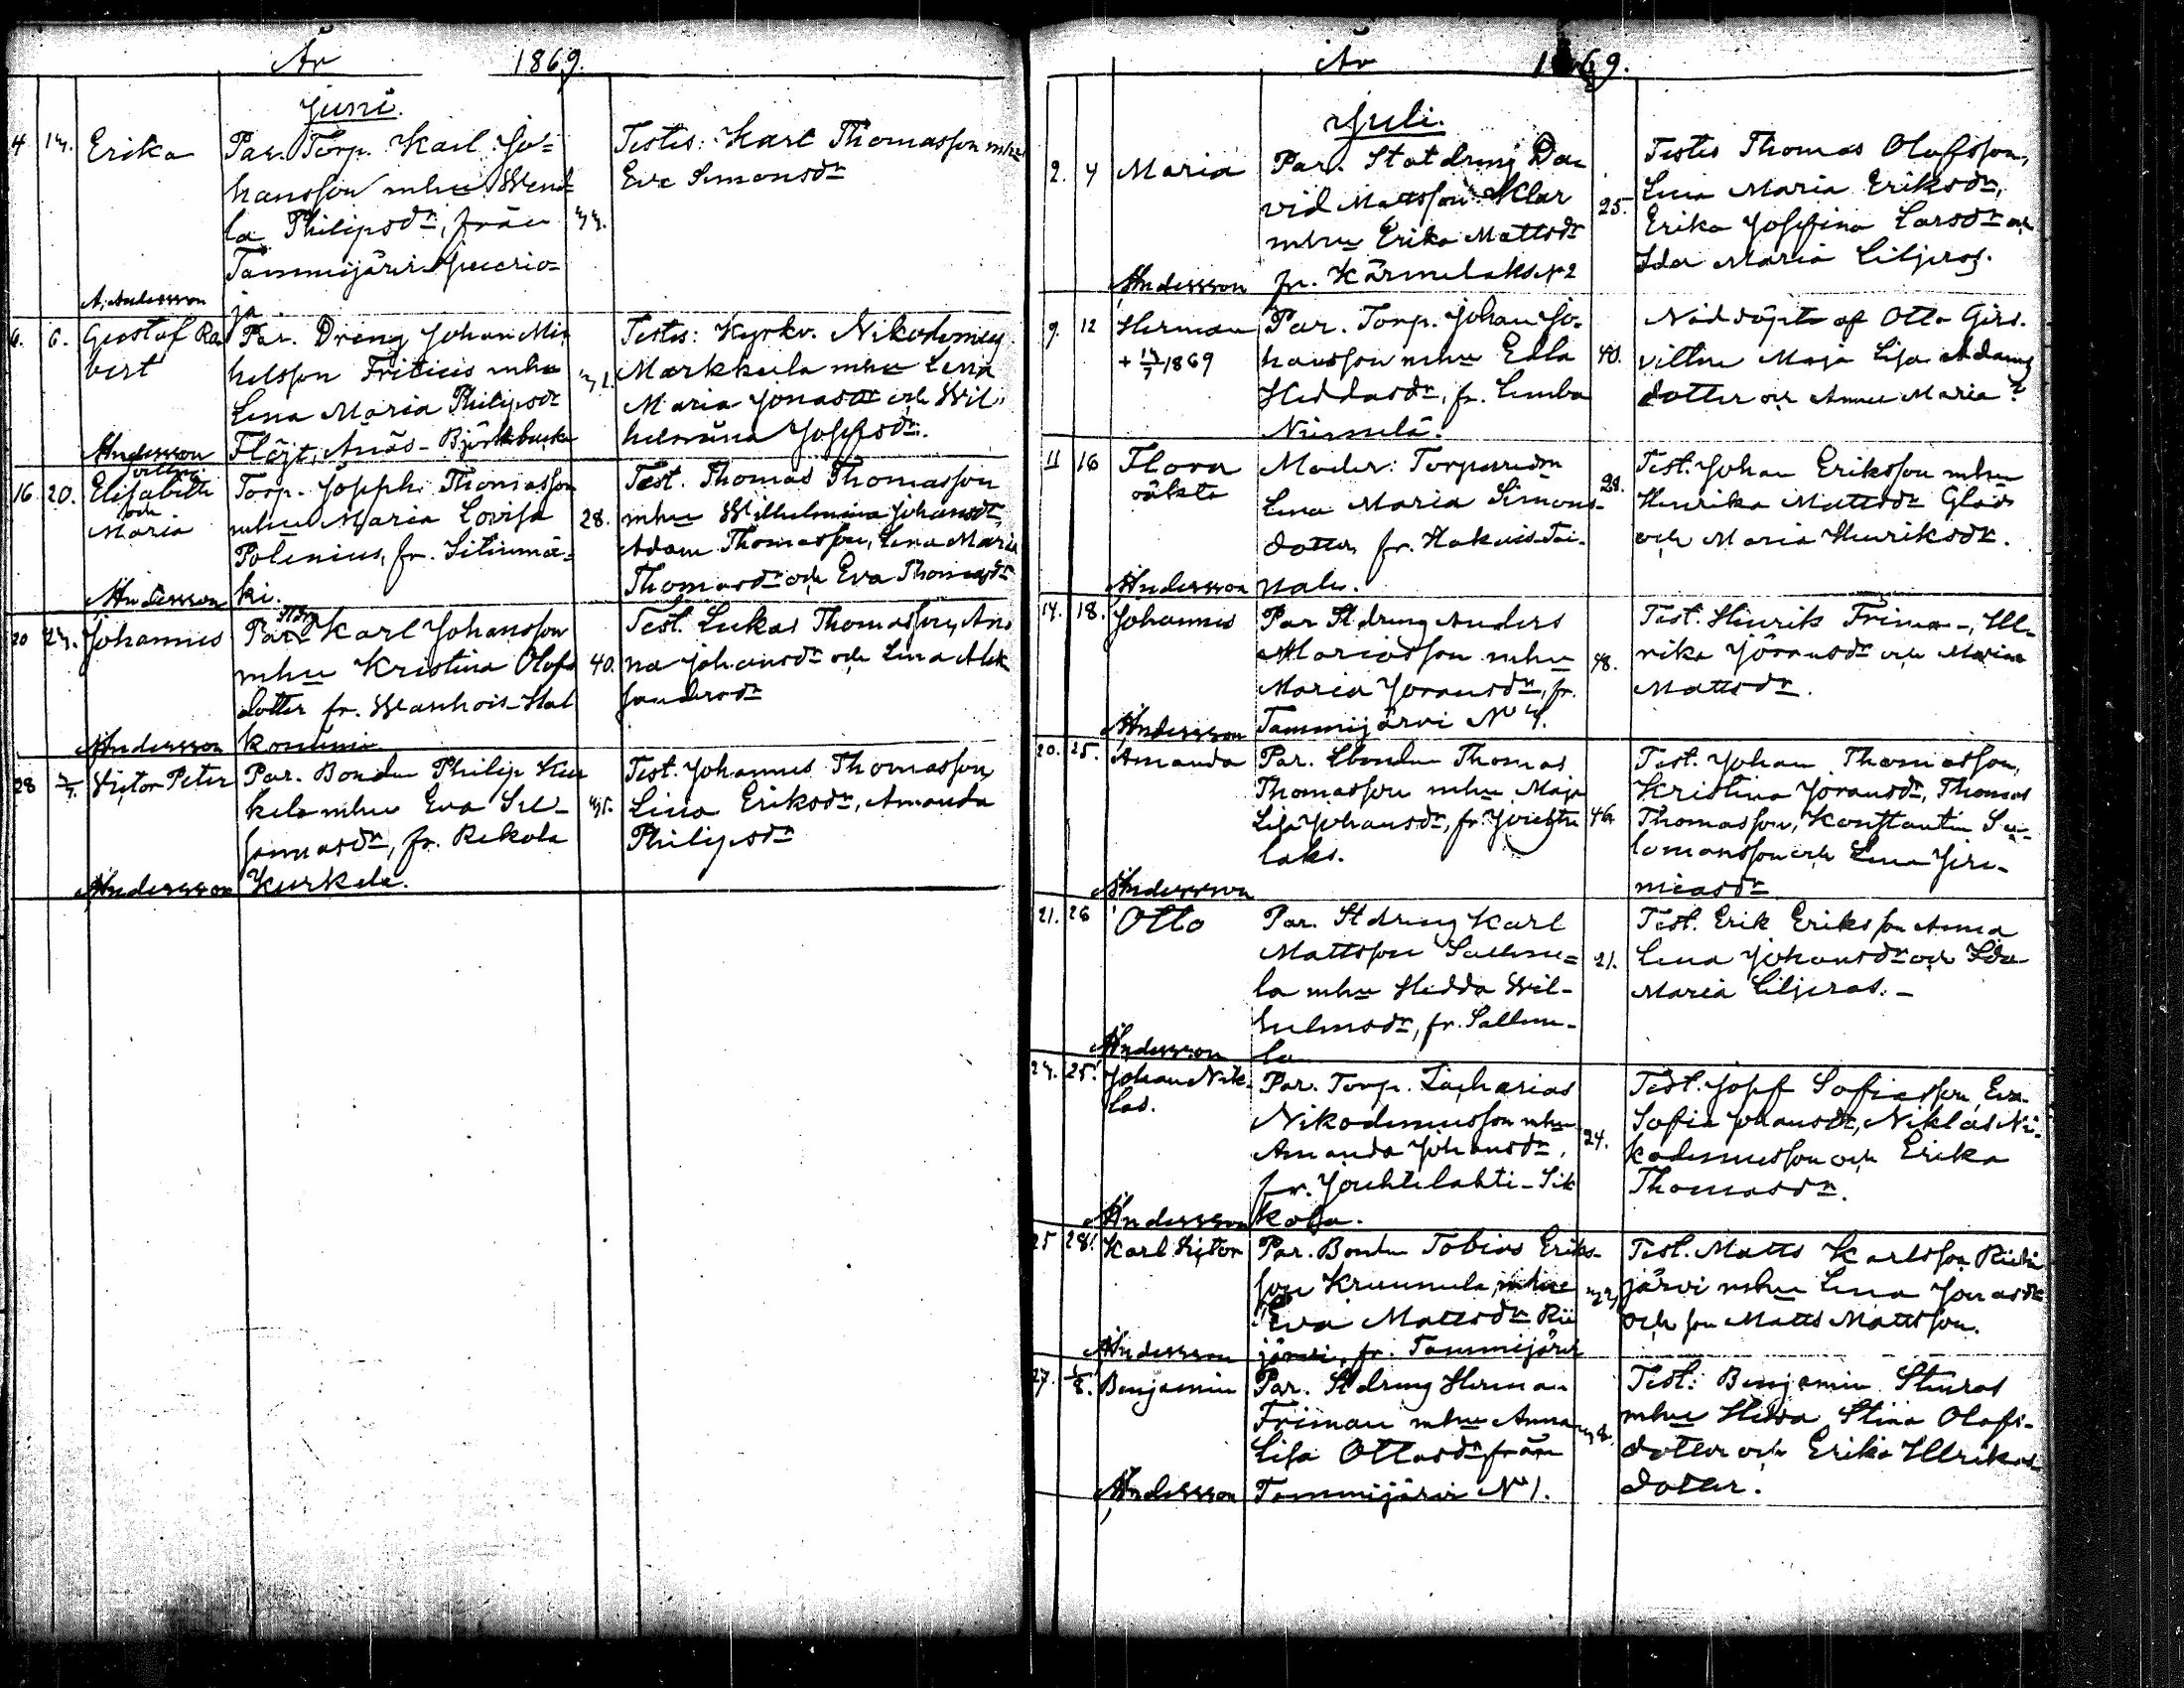 År 1869.
Juni.
4 14. Erika Par. Torp. Karl Jo=
hansson mhu Wend
la Philipsdr, från
Tammijärvi
ja
A. Andersson
Testes: Karl Thomasson mhu
Eva Simonsdr
6. 6. Gustaf Ro
bert
Par. Dreng Johan Mi
helsson Friticis mhu
Lena Maria Philipsdr
Flöjt, Anäs-Björkbacka
Andersson
Testes: Kyrkv. Nikodemus
Markkula mhu Lena
Maria Jonasdr och Wil
helmina Josefsdr.
16 20. Elisabeth
och
Maria
Torp. Joseph Thomasson
mhu Maria Lovisa
Polenius, fr. Litinmä=
ki.
Andersson
28.
Test. Thomas Thomasson
mhu Wilhelmina Johansdr,
Adam Thomasson, Lena Maria
Thomasdr och Eva Thomasdr
20 24. Johannes
Par. Karl Johansson
mhu Kristina Olofs
dotter fr. Wanhois-Hal
konumi
Andersson
40.
Test. Lukas Thomasson, An
na Johansdr och Lena Alek
sandersdr
28 Victor Peter
Par. Bonden Philip Kur
kela mhu Eva Su-
sannasdr, fr. Rekola
Kurkela.
Andersson
45.
Test. Johannes Thomasson,
Lina Eriksdr, Amanda
Philipsdr
År 1869.
Juli.
2. 4 Maria
Par. Statdreng Da
vid Mattsson Klar
mhu Erika Mattsdr
fr. Kärmelaks No 2
Andersson
25.
Testes Thomas Olofsson,
Lena Maria Eriksdr,
Erika Josefina Larsdr och
Ida Maria Liljeros.
9. 12 Herman
+ 14/7 1869
Par. Torp. Johan Jo-
hansson mhu Edla
Heddasdr, fr. Lemba
Niemelä.
40.
Nöddöpt af Otto Girs.
vittne Maja Lisa Adams
dotter och Anna Maria?
11 16 Flora
oäkta
Moder: Torparedr
Lena Maria Simons-
dotter fr. Hakuis-Tai-
nale.
Andersson
28.
Test. Johan Eriksson mhu
Henrika Mattsdr Glad
och Maria Henriksdr.
14. 18. Johannes
Par Stdreng Anders
Mariasson mhu
Maria Joransdr, fr.
Tammijärvi No 4.
Andersson
48.
Test. Henrik Friman, Ul-
rika Jöransdr och Maria
Mattsdr.
20. 25. Amanda
Par. Lbonden Thomas
Thomasson mhu Maja
Lisa Johansdr, fr. Jouhte
laks.
Andersson
46
Test. Johan Thomasson,
Kristina Joransdr, Thomas
Thomasson, Konstantin Sa-
lomonsson och Lena Jere-
miasdr
21. 26 Otto
Par. Stdreng Karl
Mattsson Sallme=
la mhu Hedda Wil-
helmsdr, fr. Sallme-
la
Andersson
21.
Test. Erik Eriksson Anna
Lena Johansdr och Ida
Maria Liljeros. -
24. 25. Johan Nik-
las.
Par. Torp. Zacharias
Nikodemusson mhu
Amanda Johansdr,
fr. Jouhtelahti-Sik
kola.
Andersson
24.
Test. Josef Sofiasson, Eva
Sofia Johansdr, Niklas Ni-
kodemusson och Erika
Thomasdr.
25 28. Karl Victor
Par. Bonden Tobias Eriks-
son Kruunula, mhu
Eva Mattsdr Rii
järvi, fr. Tammijärvi
Andersson
Test. Matts Karlsson Riihi
järvi mhu Lena Jonasdr
och son Matts Mattsson.
27. 1/8. Benjamin
Par. Stdreng Herman
Friman mhu Anna
Lisa Ottosdr från
Tammijärvi No 1.
Andersson
Test: Benjamin Stenros
mhu Hedda Stina Olofs-
dotter och Erika Ulrikas
dotter.